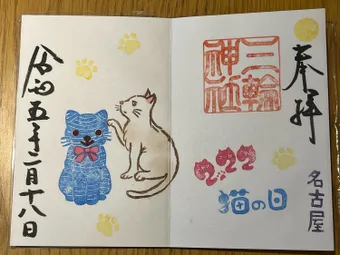 奉拝
三輪
神社
名古屋
2.22
猫の日
令和五年二月十八日